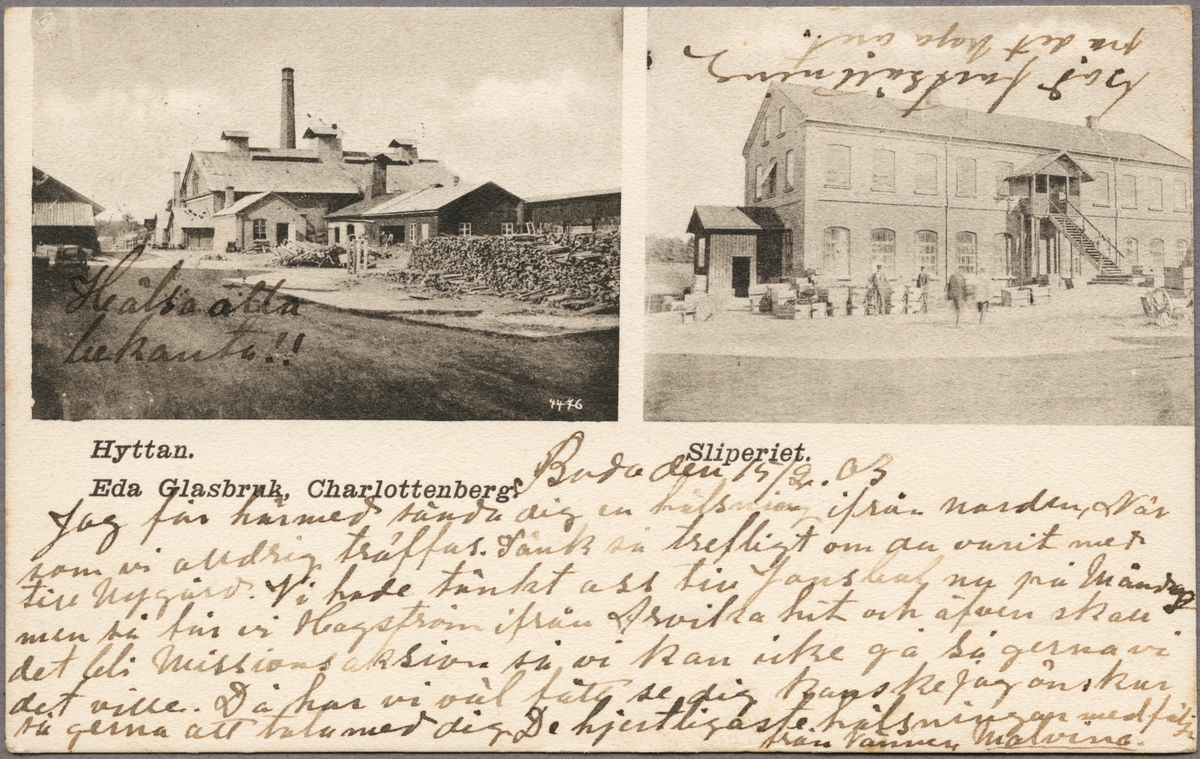 Båd fortsättning
på det höga ant.
Hälsa alla
bekanta!!
4476
Hyttan.
Sliperiet.
Eda Glasbruk, Charlottenberg.
Boda den 15/2. 03
Jag får härmed sända dig en hälsning ifrån norden, När
som vi aldrig träffas. Tänk så trefligt om du varit med
till Nygård. Vi hade tänkt oss till Jonsbol nu på Måndag
men så får vi Hagström ifrån Arvika hit och äfven skall
det bli Missionsauksion så vi kan icke gå så gerna vi
det ville. Då har vi väl fått se dig kanske Jag önskar
så gerna att tala med dig. De hjertligaste hälsningar medfölj
från Vännen Malvina.